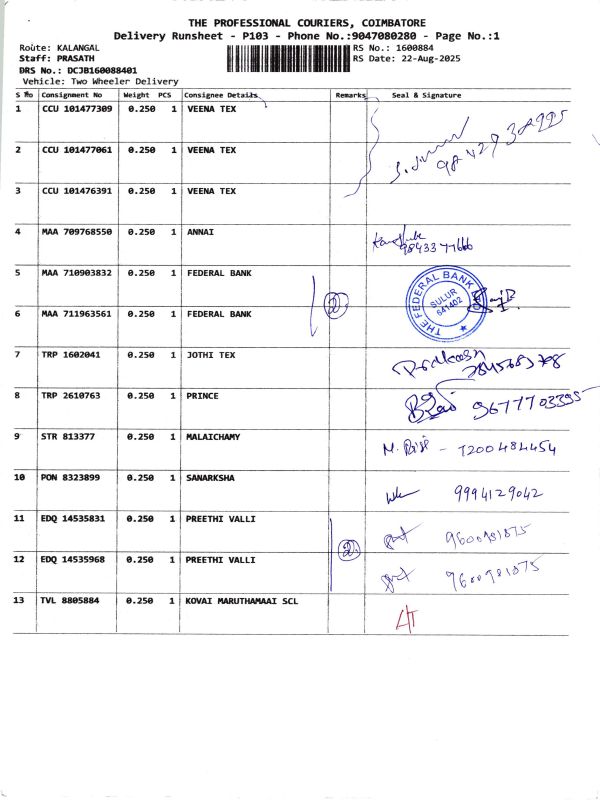 THE PROFESSIONAL COURIERS, COIMBATORE
Delivery Runsheet - P103 - Phone No.:9047080280 - Page No.:1
Route: KALANGAL RS No.: 1600884
Staff: PRASATH RS Date: 22-Aug-2025
DRS No.: DCJB160088401
Vehicle: Two Wheeler Delivery
S No Consignment No Weight PCS Consignee Details Remarks Seal & Signature
1 CCU 101477309 0.250 1 VEENA TEX
2 CCU 101477061 0.250 1 VEENA TEX
3 CCU 101476391 0.250 1 VEENA TEX
4 MAA 709768550 0.250 1 ANNAI
9843377666
5 MAA 710903832 0.250 1 FEDERAL BANK
2 THE FEDERAL BANK SULUR 641402
6 MAA 711963561 0.250 1 FEDERAL BANK
7 TRP 1602041 0.250 1 JOTHI TEX Prakash
8 TRP 2610763 0.250 1 PRINCE 9677703395
9 STR 813377 0.250 1 MALAICHAMY M. - 7200484454
10 PON 8323899 0.250 1 SANARKSHA 9994129042
11 EDQ 14535831 0.250 1 PREETHI VALLI 9600981875
2
12 EDQ 14535968 0.250 1 PREETHI VALLI 9600981875
13 TVL 8805884 0.250 1 KOVAI MARUTHAMAAI SCL